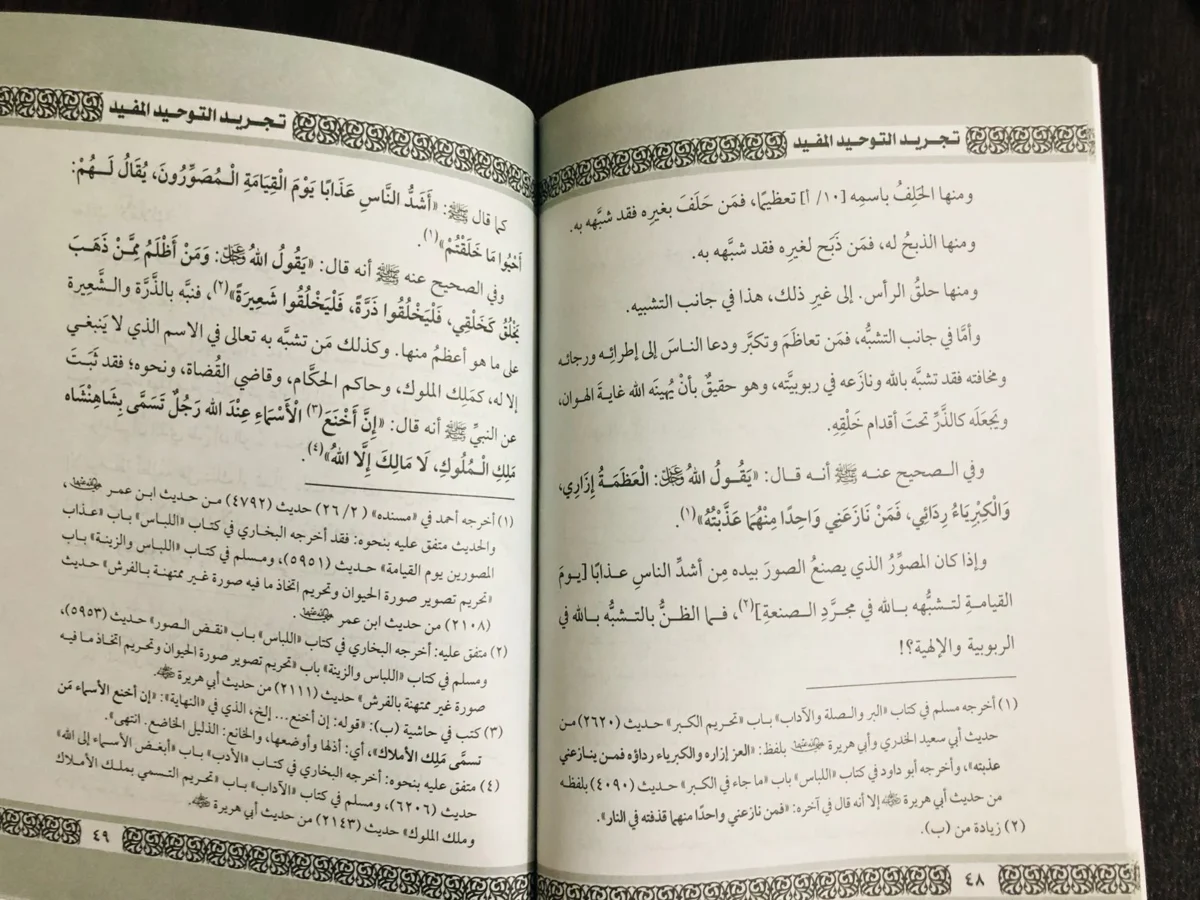 تجريد التوحيد المفيد
ومنها الحَلِفُ باسمِه [١٠/ أ] تعظيمًا، فمَن حَلَفَ بغيرِه فقد شبَّهه به.
ومنها الذبحُ له، فمَن ذَبَح لغيرِه فقد شبَّهه به.
ومنها حلقُ الرأس. إلى غيرِ ذلك، هذا في جانب التشبيه.
وأمَّا في جانب التشبُّه، فمَن تعاظَمَ وتكبَّر ودعا الناسَ إلى إطرائِه ورجائه
ومخافته فقد تشبَّه بالله ونازَعه في ربوبيَّته، وهو حقيقٌ بأنْ يُهينَه الله غايةَ الهوان،
ويَجعلَه كالذَّرِّ تحتَ أقدام خَلْقِهِ.
وفي الصحيح عنه ﷺ أنه قال: «يَقُولُ اللهُ عَزَّ وَجَلَّ: الْعَظَمَةُ إِزَارِي،
وَالْكِبْرِيَاءُ رِدَائِي، فَمَنْ نَازَعَنِي وَاحِدًا مِنْهُمَا عَذَّبْتُهُ»(١).
وإذا كان المصوِّرُ الذي يصنعُ الصورَ بيده مِن أشدِّ الناسِ عذابًا [يومَ
القيامةِ لتشبُّهه بالله في مجرَّدِ الصنعةِ](٢)، فما الظنُّ بالتشبُّه بالله في
الربوبية والإلهية؟!
(١) أخرجه مسلم في كتاب «البر والصلة والآداب» باب «تحريم الكبر» حديث (٢٦٢٠) من
حديث أبي سعيد الخدري وأبي هريرة رضي الله عنهما بلفظ: «العز إزاره والكبرياء رداؤه فمن ينازعني
عذبته»، وأخرجه أبو داود في كتاب «اللباس» باب «ما جاء في الكبر» حديث (٤٠٩٠) بلفظه
من حديث أبي هريرة رضي الله عنه إلا أنه قال في آخره: «فمن نازعني واحدًا منهما قذفته في النار».
(٢) زيادة من (ب).
٤٨
تجريد التوحيد المفيد
كما قال ﷺ: «أَشَدُّ النَّاسِ عَذَابًا يَوْمَ الْقِيَامَةِ الْمُصَوِّرُونَ، يُقَالُ لَهُمْ:
أَحْيُوا مَا خَلَقْتُمْ»(١).
وفي الصحيح عنه ﷺ أنه قال: «يَقُولُ اللهُ عَزَّ وَجَلَّ: وَمَنْ أَظْلَمُ مِمَّنْ ذَهَبَ
يَخْلُقُ كَخَلْقِي، فَلْيَخْلُقُوا ذَرَّةً، فَلْيَخْلُقُوا شَعِيرَةً»(٢)، فنبَّه بالذَّرَّة والشَّعِيرة
على ما هو أعظمُ منها. وكذلك مَن تشبَّه به تعالى في الاسم الذي لا يَنبغي
إلا له، كمَلِك الملوك، وحاكم الحكَّام، وقاضي القُضاة، ونحوه؛ فقد ثَبَتَ
عن النبيِّ ﷺ أنه قال: «إِنَّ أَخْنَعَ(٣) الْأَسْمَاءِ عِنْدَ الله رَجُلٌ تَسَمَّى بِشَاهِنْشَاه
مَلِكِ الْمُلُوكِ، لَا مَالِكَ إِلَّا اللهُ»(٤).
(١) أخرجه أحمد في «مسنده» (٢/ ٢٦) حديث (٤٧٩٢) من حديث ابن عمر رضي الله عنهما،
والحديث متفق عليه بنحوه: فقد أخرجه البخاري في كتاب «اللباس» باب «عذاب
المصورين يوم القيامة» حديث (٥٩٥١)، ومسلم في كتاب «اللباس والزينة» باب
«تحريم تصوير صورة الحيوان وتحريم اتخاذ ما فيه صورة غير ممتهنة بالفرش» حديث
(٢١٠٨) من حديث ابن عمر رضي الله عنهما.
(٢) متفق عليه: أخرجه البخاري في كتاب «اللباس» باب «نقض الصور» حديث (٥٩٥٣)،
ومسلم في كتاب «اللباس والزينة» باب «تحريم تصوير صورة الحيوان وتحريم اتخاذ ما فيه
صورة غير ممتهنة بالفرش» حديث (٢١١١) من حديث أبي هريرة رضي الله عنه.
(٣) كتب في حاشية (ب): «قوله: إن أخنع... إلخ، الذي في «النهاية»: «إن أخنع الأسماء مَن
تسمَّى مَلِك الأملاك»، أي: أذلها وأوضعها، والخانع: الذليل الخاضع. انتهى».
(٤) متفق عليه بنحوه: أخرجه البخاري في كتاب «الأدب» باب «أبغض الأسماء إلى الله»
حديث (٦٢٠٦)، ومسلم في كتاب «الآداب» باب «تحريم التسمي بملك الأملاك
وملك الملوك» حديث (٢١٤٣) من حديث أبي هريرة رضي الله عنه.
٤٩